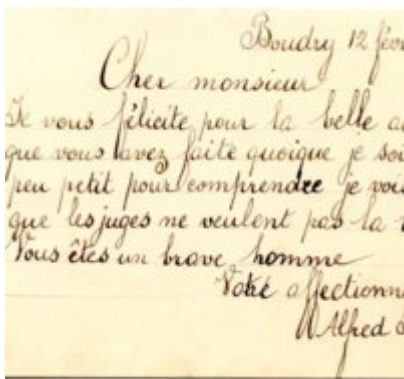 Boudry 12 fév
Cher monsieur
Je vous félicite pour la belle a
que vous avez faite quoique je soi
peu petit pour comprendre je vois
que les juges ne veulent pas la
Vous êtes un brave homme
Votre affectionn
Alfred